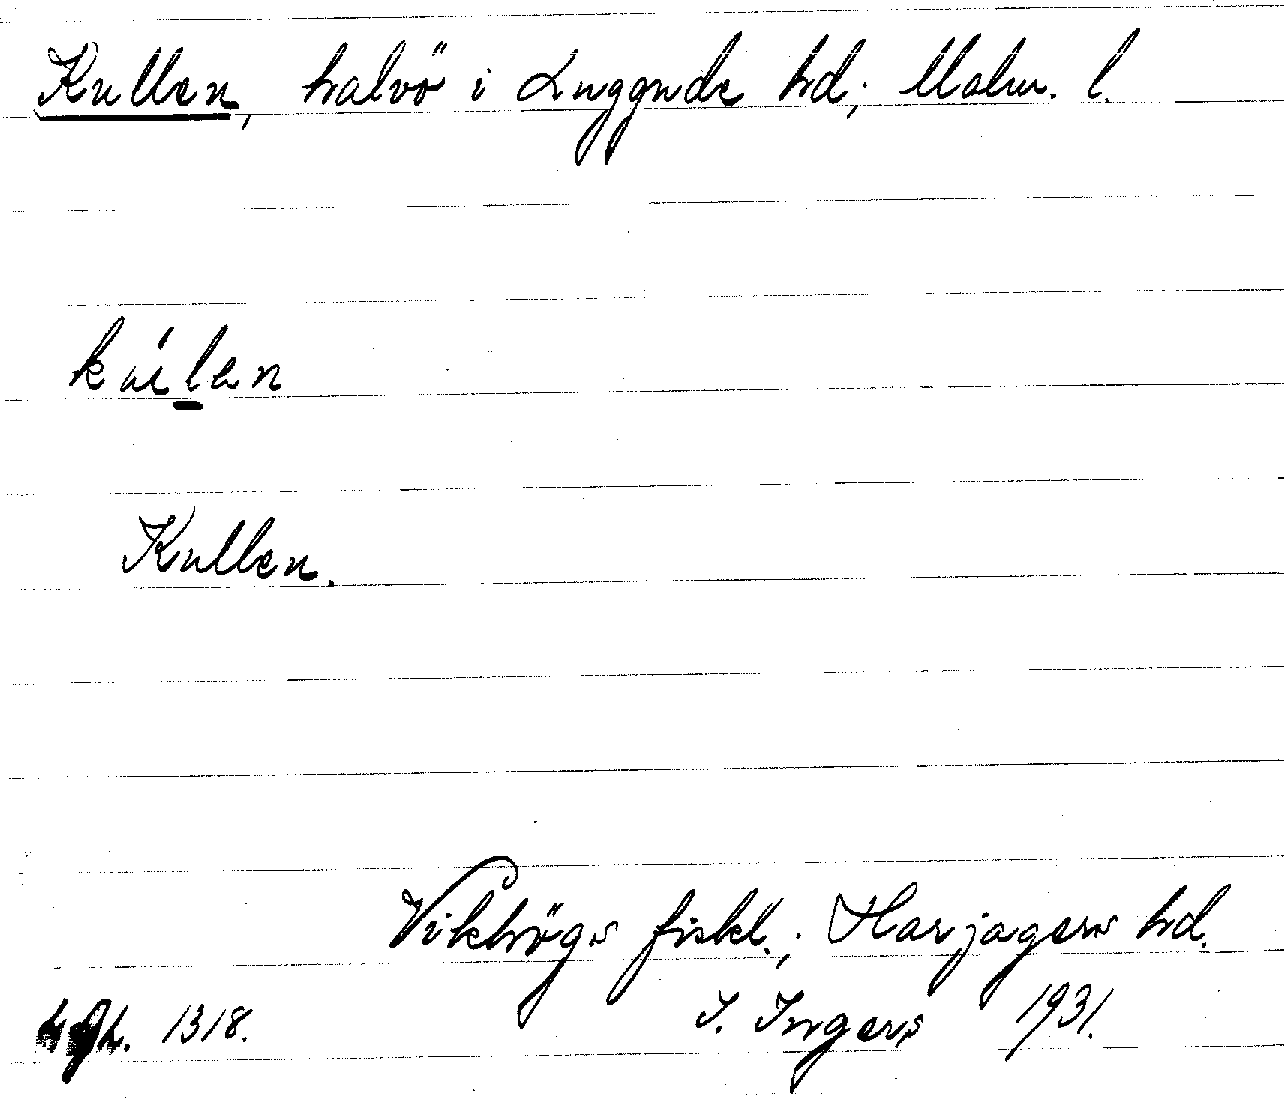 Kullen, halvö i Luggude hd; Malm. l.
kúlen
Kullen.
Vikhögs fiskl.; Harjagers hd.
1318. I. Ingers 1931.